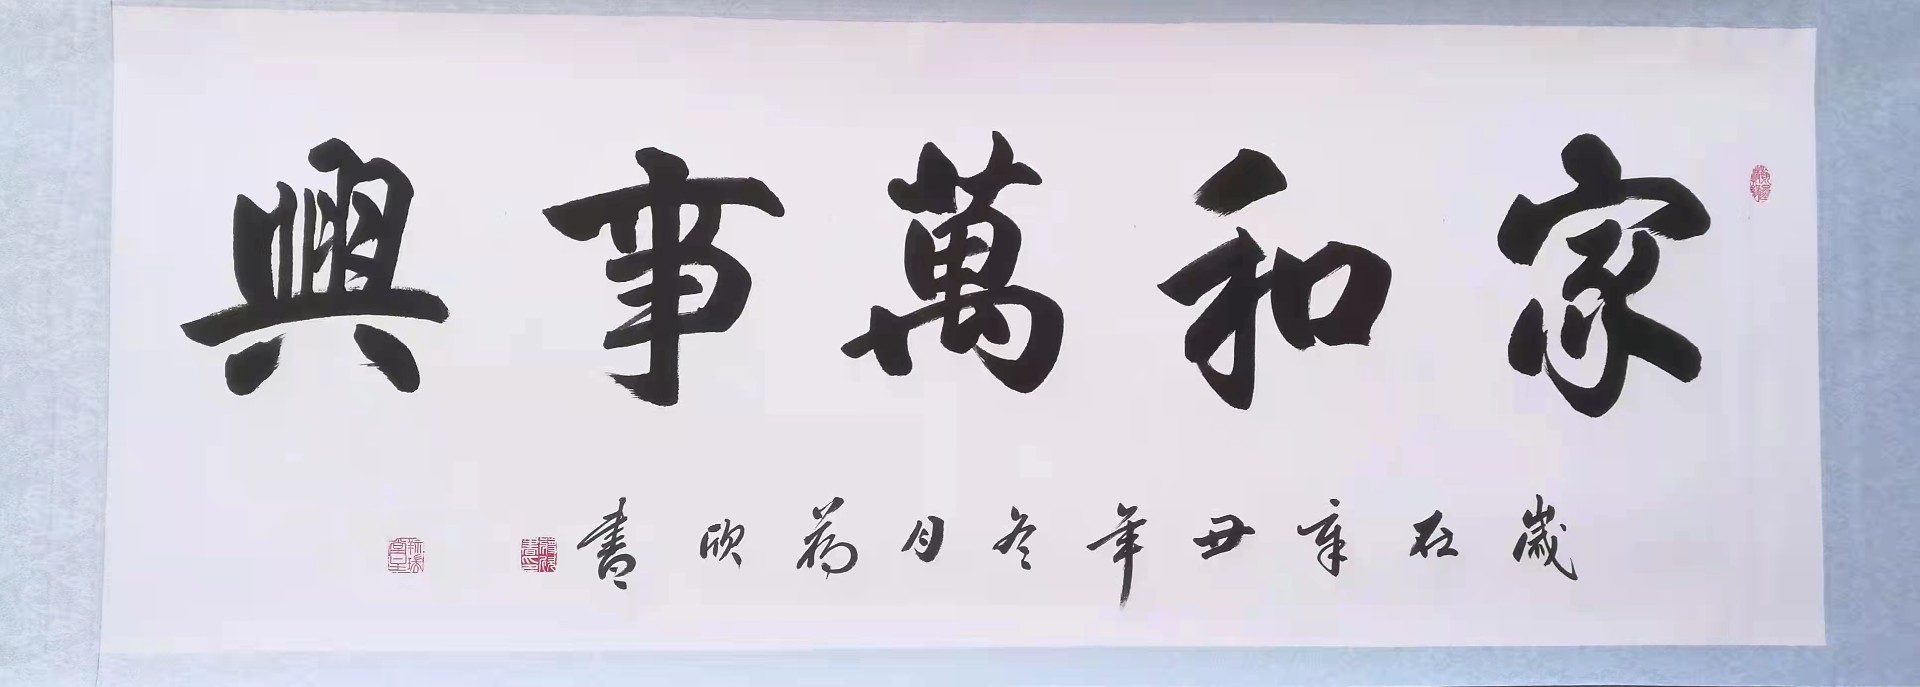 家和萬事興
歲在辛丑年冬月荔欣書